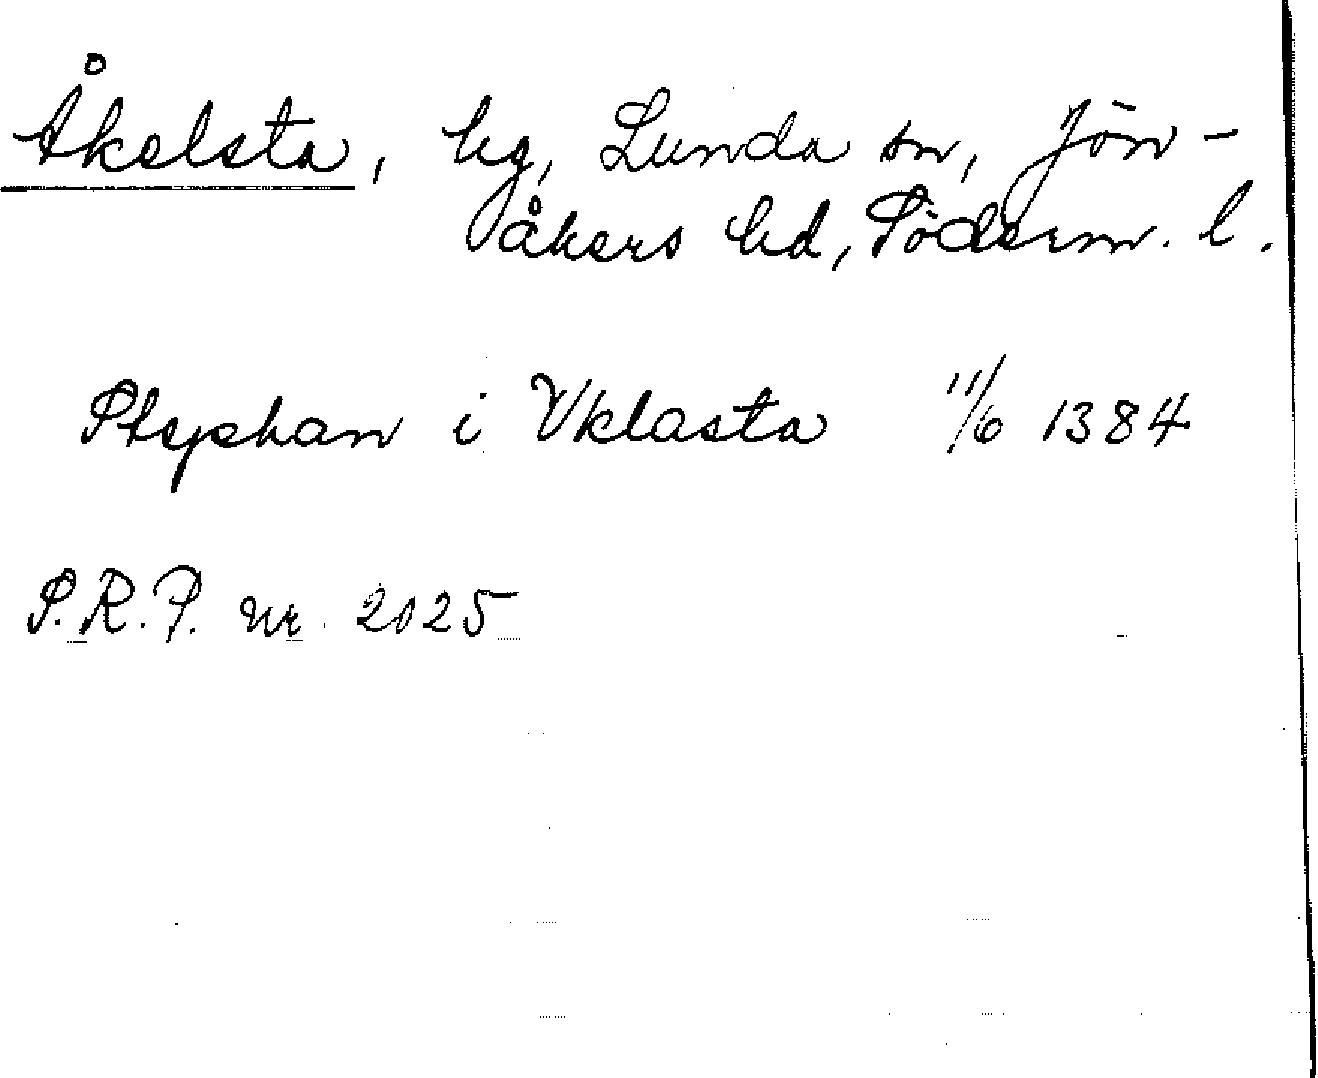 Åkelsta, hg, Lunda sn, Jön-
åkers hd, Söderm. l.
Stephan i Vklasta 11/6 1384
S.R.P. nr. 2025